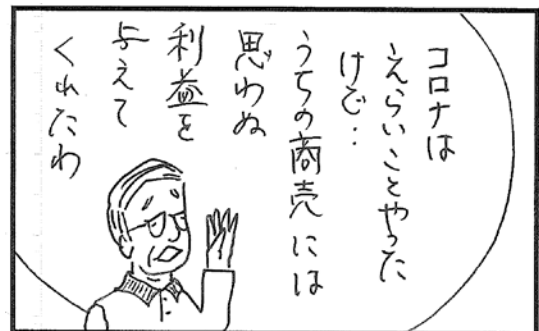 コロナは
えらいことやった
けど…
うちの商売には
思わぬ
利益を
与えて
くれたわ